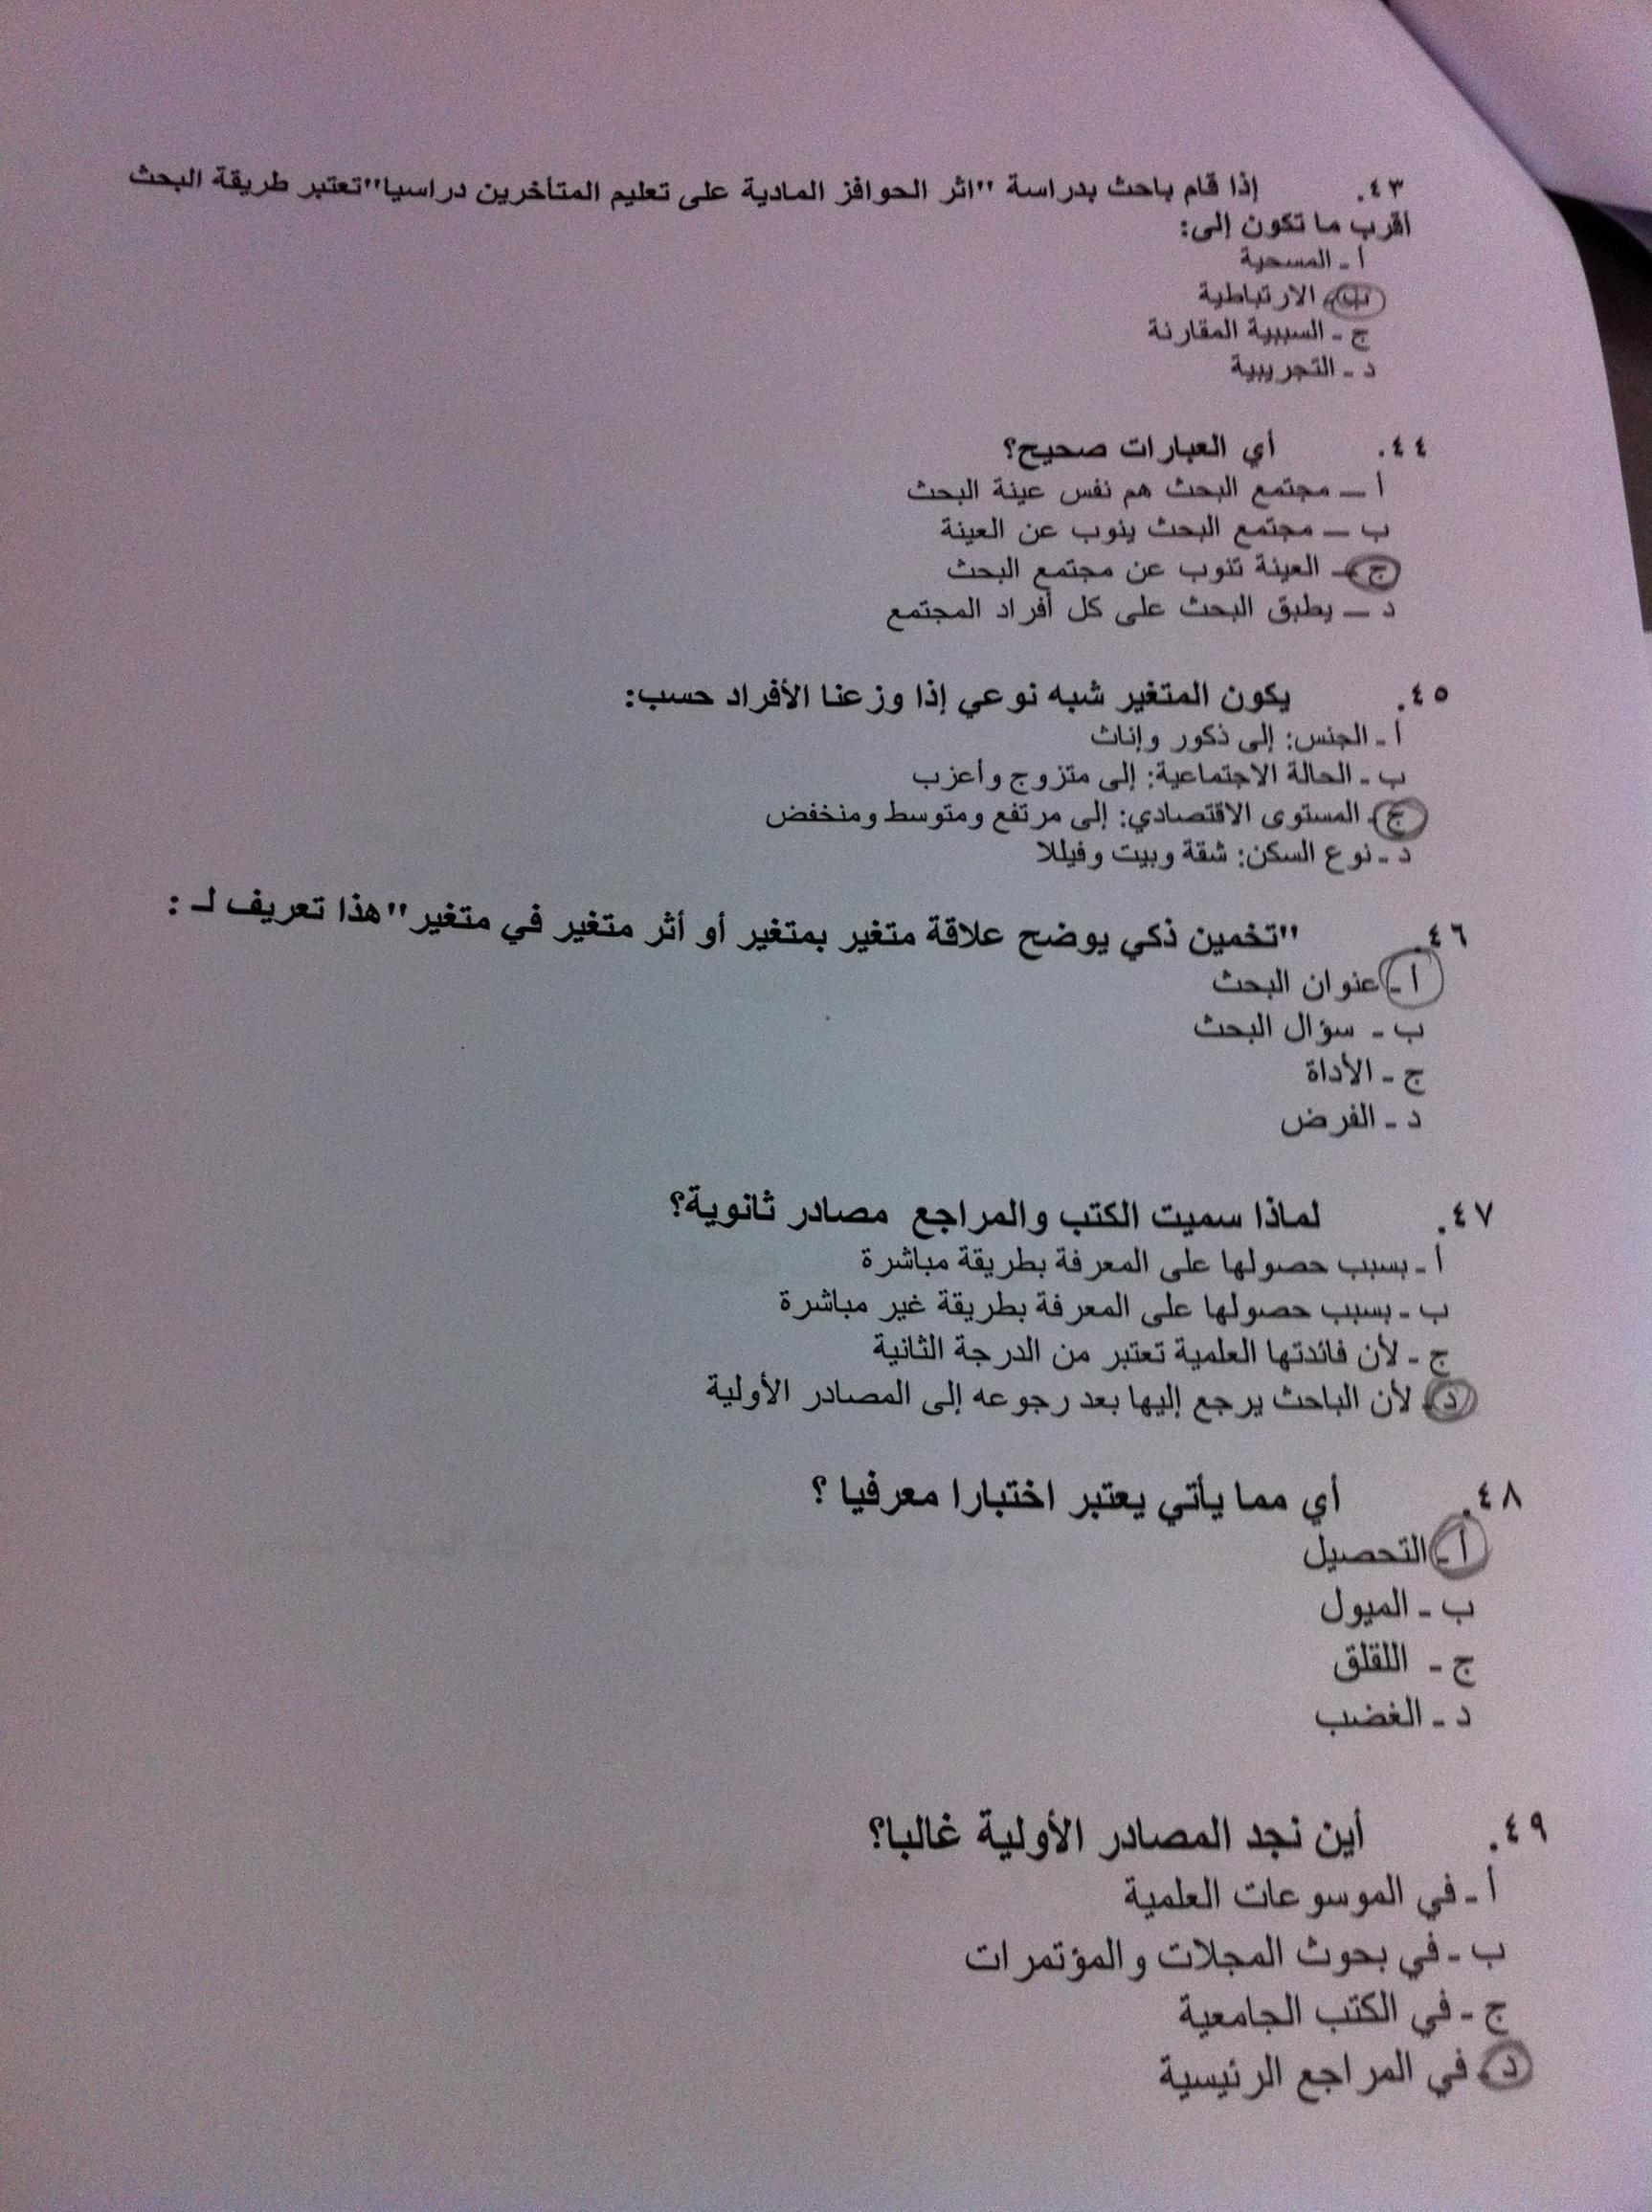 ٤٣. إذا قام باحث بدراسة "اثر الحوافز المادية على تعليم المتأخرين دراسيا"تعتبر طريقة البحث
اقرب ما تكون إلى:
أ - المسحية
ب - الارتباطية
ج - السببية المقارنة
د - التجريبية
٤٤. أي العبارات صحيح؟
أ – مجتمع البحث هم نفس عينة البحث
ب – مجتمع البحث ينوب عن العينة
ج – العينة تنوب عن مجتمع البحث
د – يطبق البحث على كل أفراد المجتمع
٤٥. يكون المتغير شبه نوعي إذا وزعنا الأفراد حسب:
أ - الجنس: إلى ذكور وإناث
ب - الحالة الاجتماعية: إلى متزوج وأعزب
ج - المستوى الاقتصادي: إلى مرتفع ومتوسط ومنخفض
د - نوع السكن: شقة وبيت وفيللا
٤٦. "تخمين ذكي يوضح علاقة متغير بمتغير أو أثر متغير في متغير"هذا تعريف لـ :
أ - عنوان البحث
ب - سؤال البحث
ج - الأداة
د - الفرض
٤٧. لماذا سميت الكتب والمراجع مصادر ثانوية؟
أ - بسبب حصولها على المعرفة بطريقة مباشرة
ب - بسبب حصولها على المعرفة بطريقة غير مباشرة
ج - لأن فائدتها العلمية تعتبر من الدرجة الثانية
د - لأن الباحث يرجع إليها بعد رجوعه إلى المصادر الأولية
٤٨. أي مما يأتي يعتبر اختبارا معرفيا ؟
أ - التحصيل
ب - الميول
ج - اللقلق
د - الغضب
٤٩. أين نجد المصادر الأولية غالبا؟
أ - في الموسوعات العلمية
ب - في بحوث المجلات والمؤتمرات
ج - في الكتب الجامعية
د - في المراجع الرئيسية